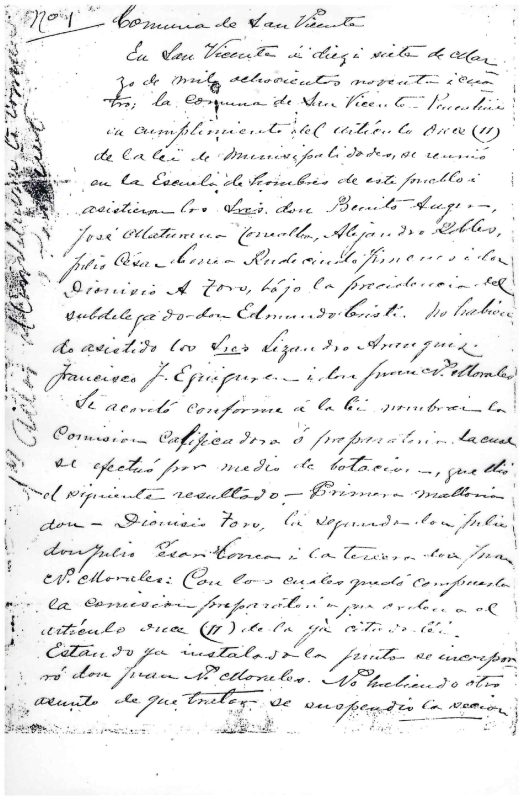 No 1 Comuna de San Vicente
En San Vicente á diez i siete de Mar
zo de mil ochocientos noventa i cua
tro; la comuna de San Vicente
in cumplimiento del artículo once (11)
de la lei de Municipalidades, se reunió
en la Escuela de hombres de este pueblo i
asistieron los Sres. don Benito
José Maturana Alejandro Robles,
Julio César Correa Rudecindo Jimenes i don
Dionisio A Toro, bajo la presidencia del
subdelegado don Edmundo Cristi. No habien
do asistido los Sres Lizandro Aranguiz
Francisco J. Eguiguren i don Juan N. Morales
Se acordó conforme á la lei nombrar la
Comision calificadora ó preparatoria. La cual
se efectuó por medio de botacion, que dio
el siguiente resultado - Primera malloria
don - Dionisio Toro, la segunda don Julio
don Julio César Correa i la tercera don Juan
N. Morales: Con los cuales quedó compuesta
la comision preparatoria que ordena el
artículo once (11) de la ya citada léi.
Estando ya instalada la junta se incorpo
ró don Juan N. Morales. No habiendo otro
asunto de que tratar se suspendio la seccion